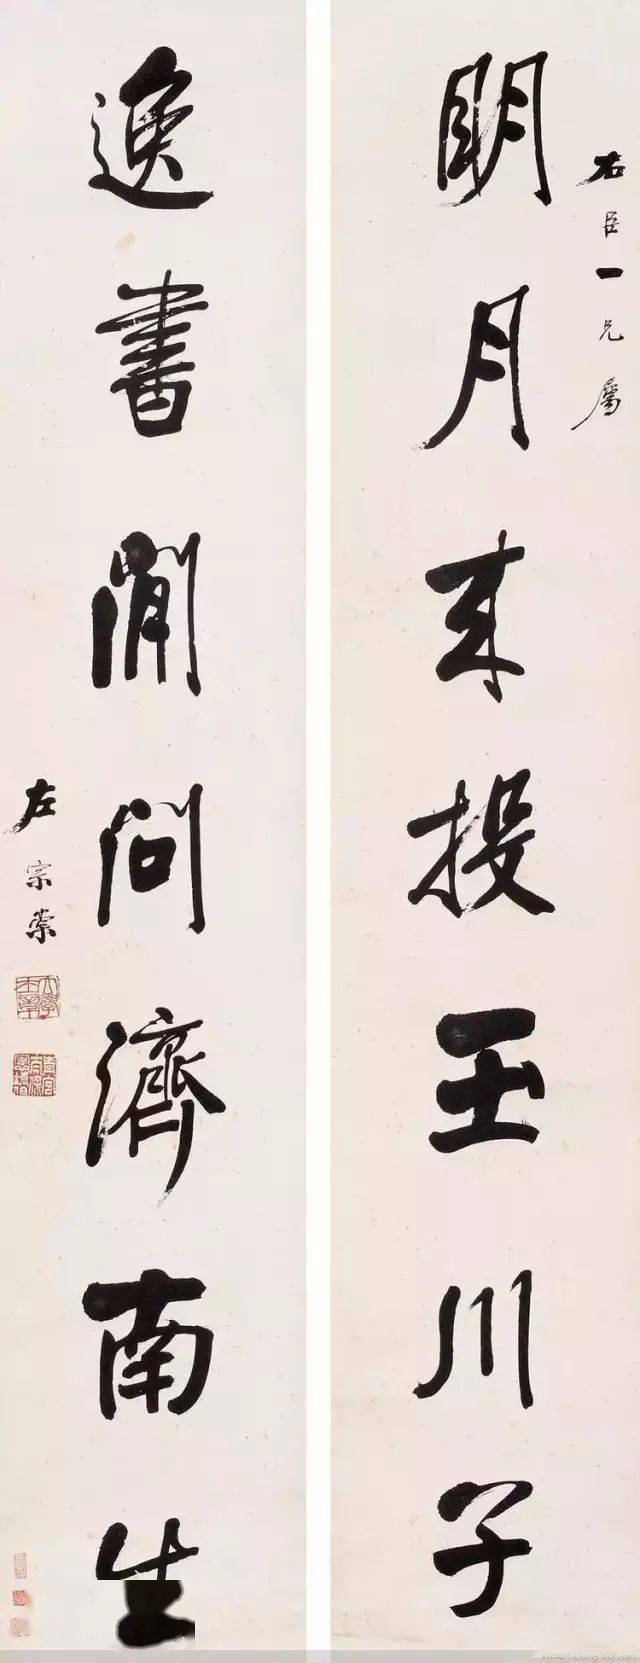 右臣一兄屬
明月来投玉川子
逸書閒問濟南生
左宗棠